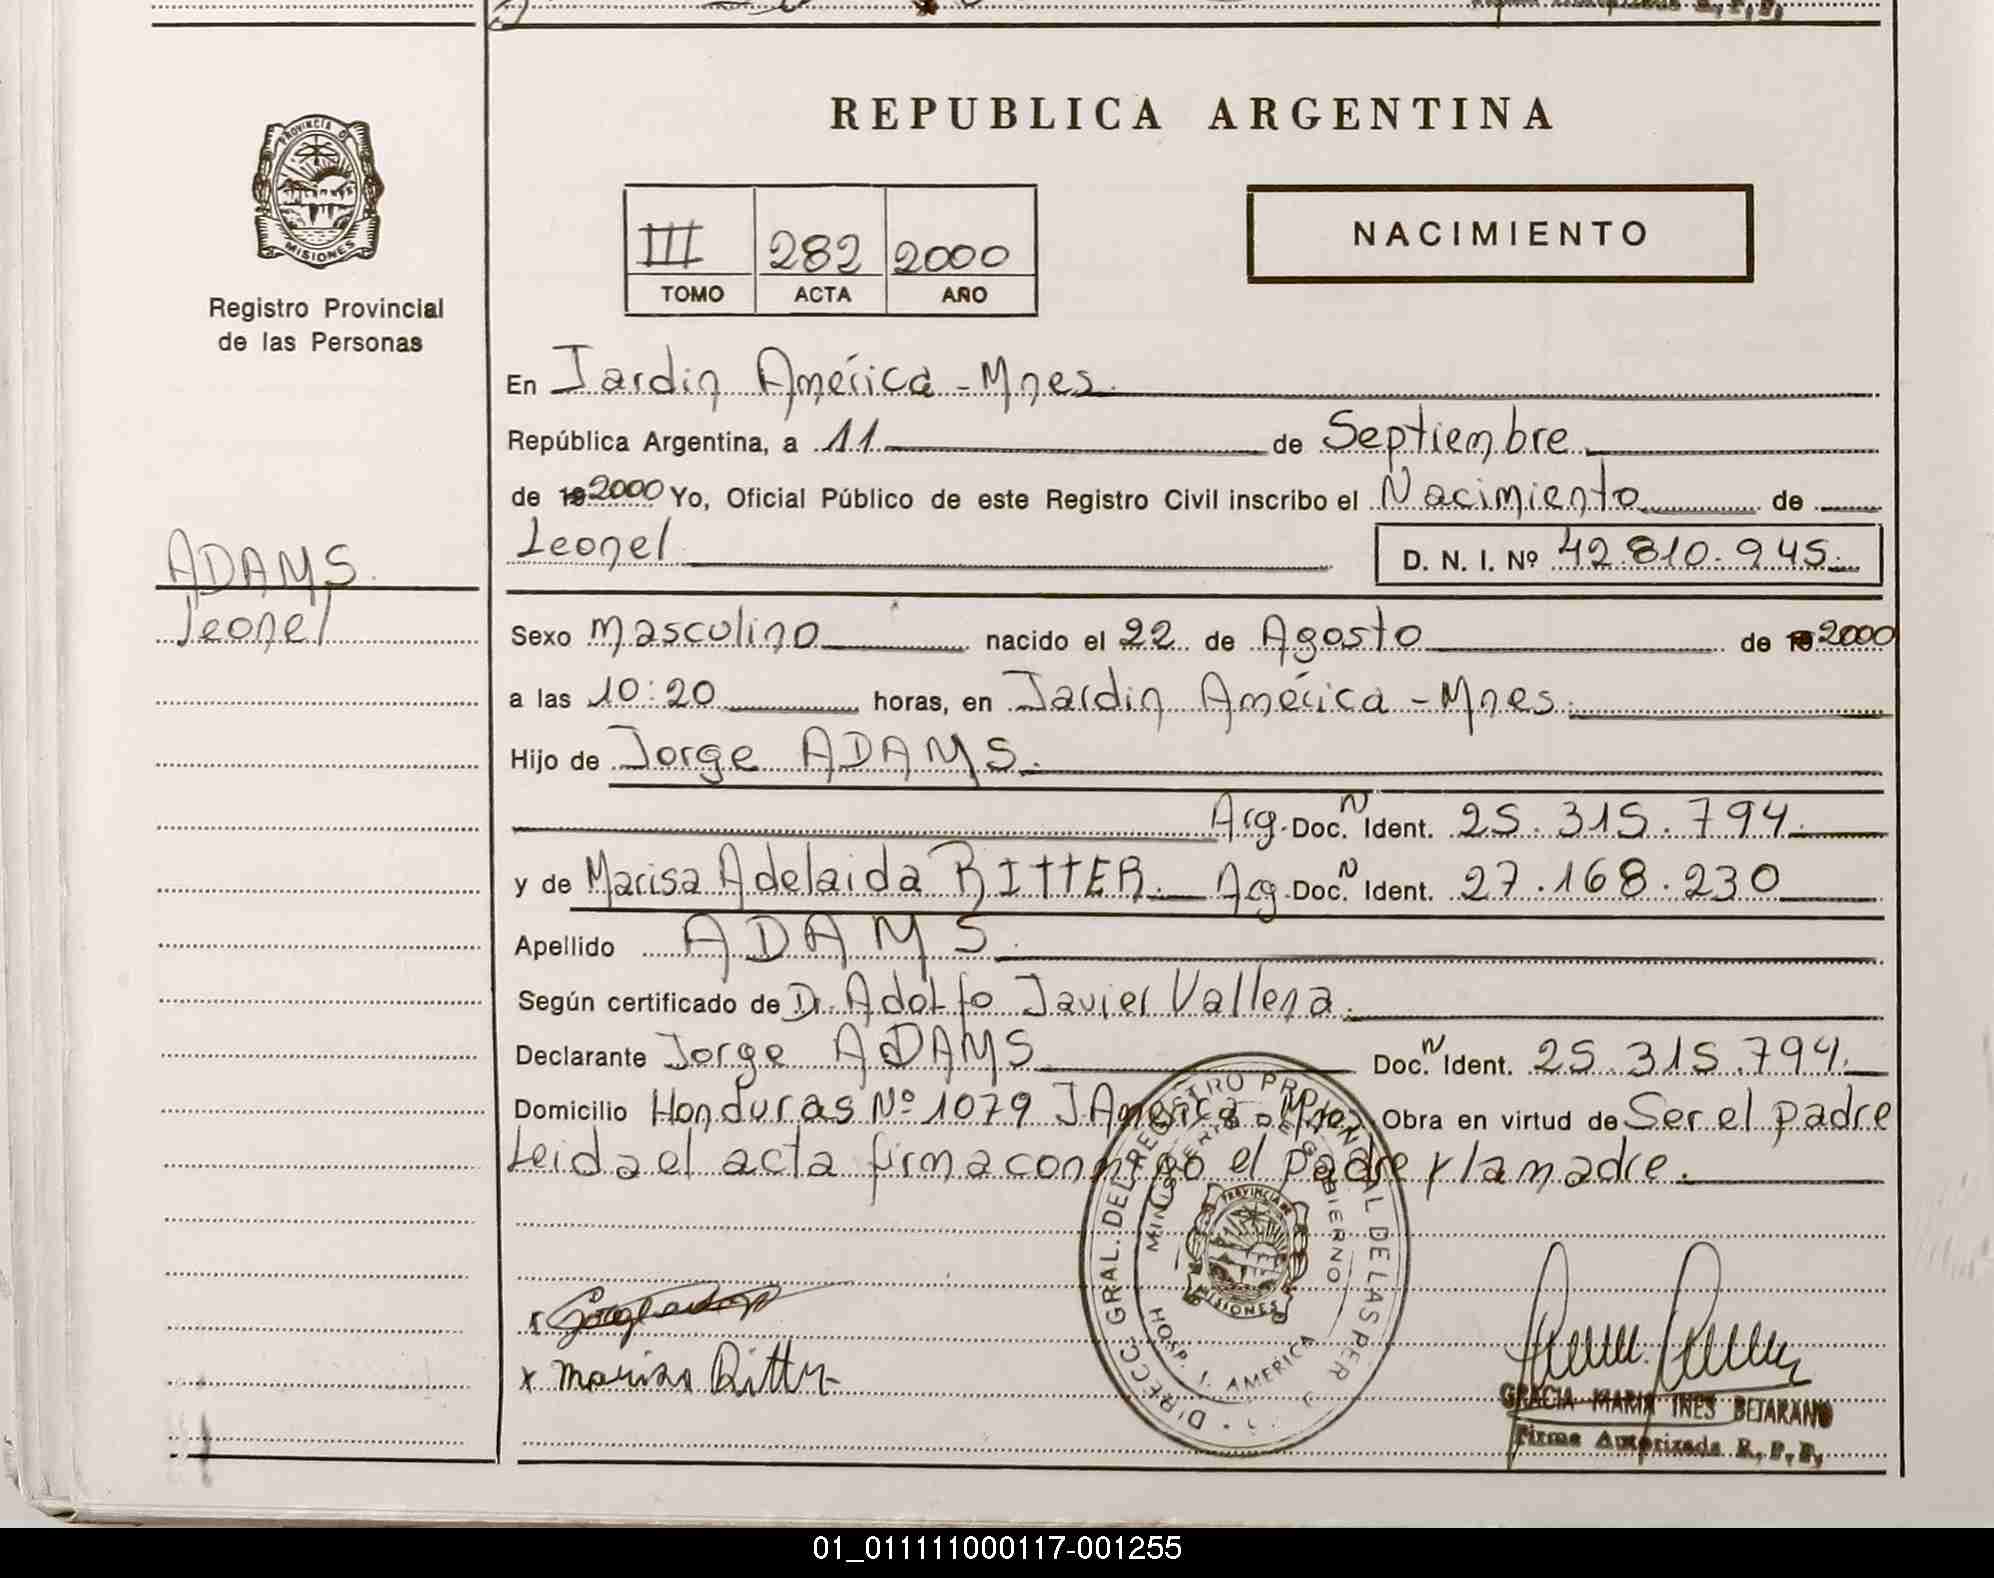 REPUBLICA ARGENTINA
PROVINCIA D
MISIONES
Registro Provincial
de las Personas
III 282 2000
TOMO ACTA AÑO
NACIMIENTO
En Jardin América - Mnes.
República Argentina, a 11 de Septiembre
de 19 2000 Yo, Oficial Público de este Registro Civil inscribo el Nacimiento de
Leonel D. N. I. Nº 42.810.945.
ADAMS.
Leonel
Sexo masculino nacido el 22 de Agosto de 19 2000
a las 10:20 horas, en Jardin América - Mnes.
Hijo de Jorge ADAMS.
Arg. Doc. N Ident. 25.315.794.
y de Marisa Adelaida RITTER. Arg. Doc. N Ident. 27.168.230
Apellido ADAMS.
Según certificado de Dr. Adolfo Javier Vallena.
Declarante Jorge ADAMS Doc. N Ident. 25.315.794.
Domicilio Honduras Nº 1079 J América - Mnes Obra en virtud de Ser el padre
Leida el acta firma conmigo el padre y la madre.
DIRECC. GRAL. DEL REGISTRO PROVINCIAL DE LAS PER
MINISTERIO DE GOBIERNO
PROVINCIA
MISIONES
HOSP. J. AMERICA
x
x Marisa Ritter
GRACIA MARIA INES BEJARANO
Firma Autorizada R. P. P.
01_011111000117-001255